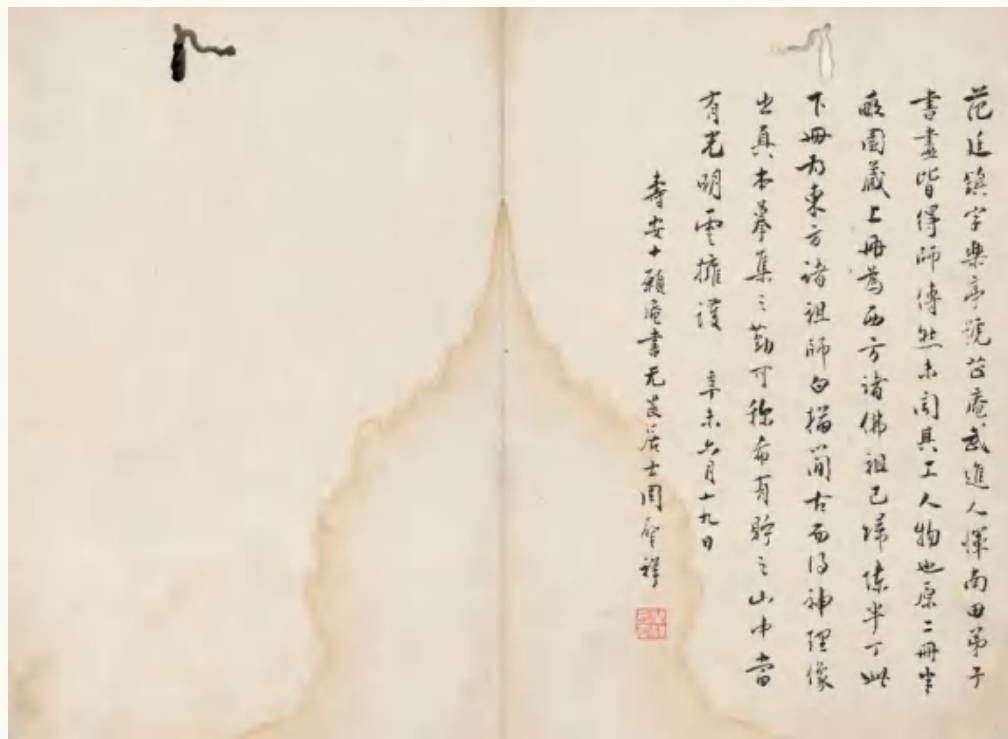 范廷鎮字樂亭號芷庵武進人惲南田弟子
書畫皆得師傳然未聞其工人物也原二冊半
畝園藏上冊為西方諸佛祖已歸陳半丁此
下冊为東方諸祖師白描簡古而得神理像
出真本摹集之勤可稱希有貯之山中當
有光明雲擁護 辛未六月十九日
壽安十願庵書无畏居士周肇祥